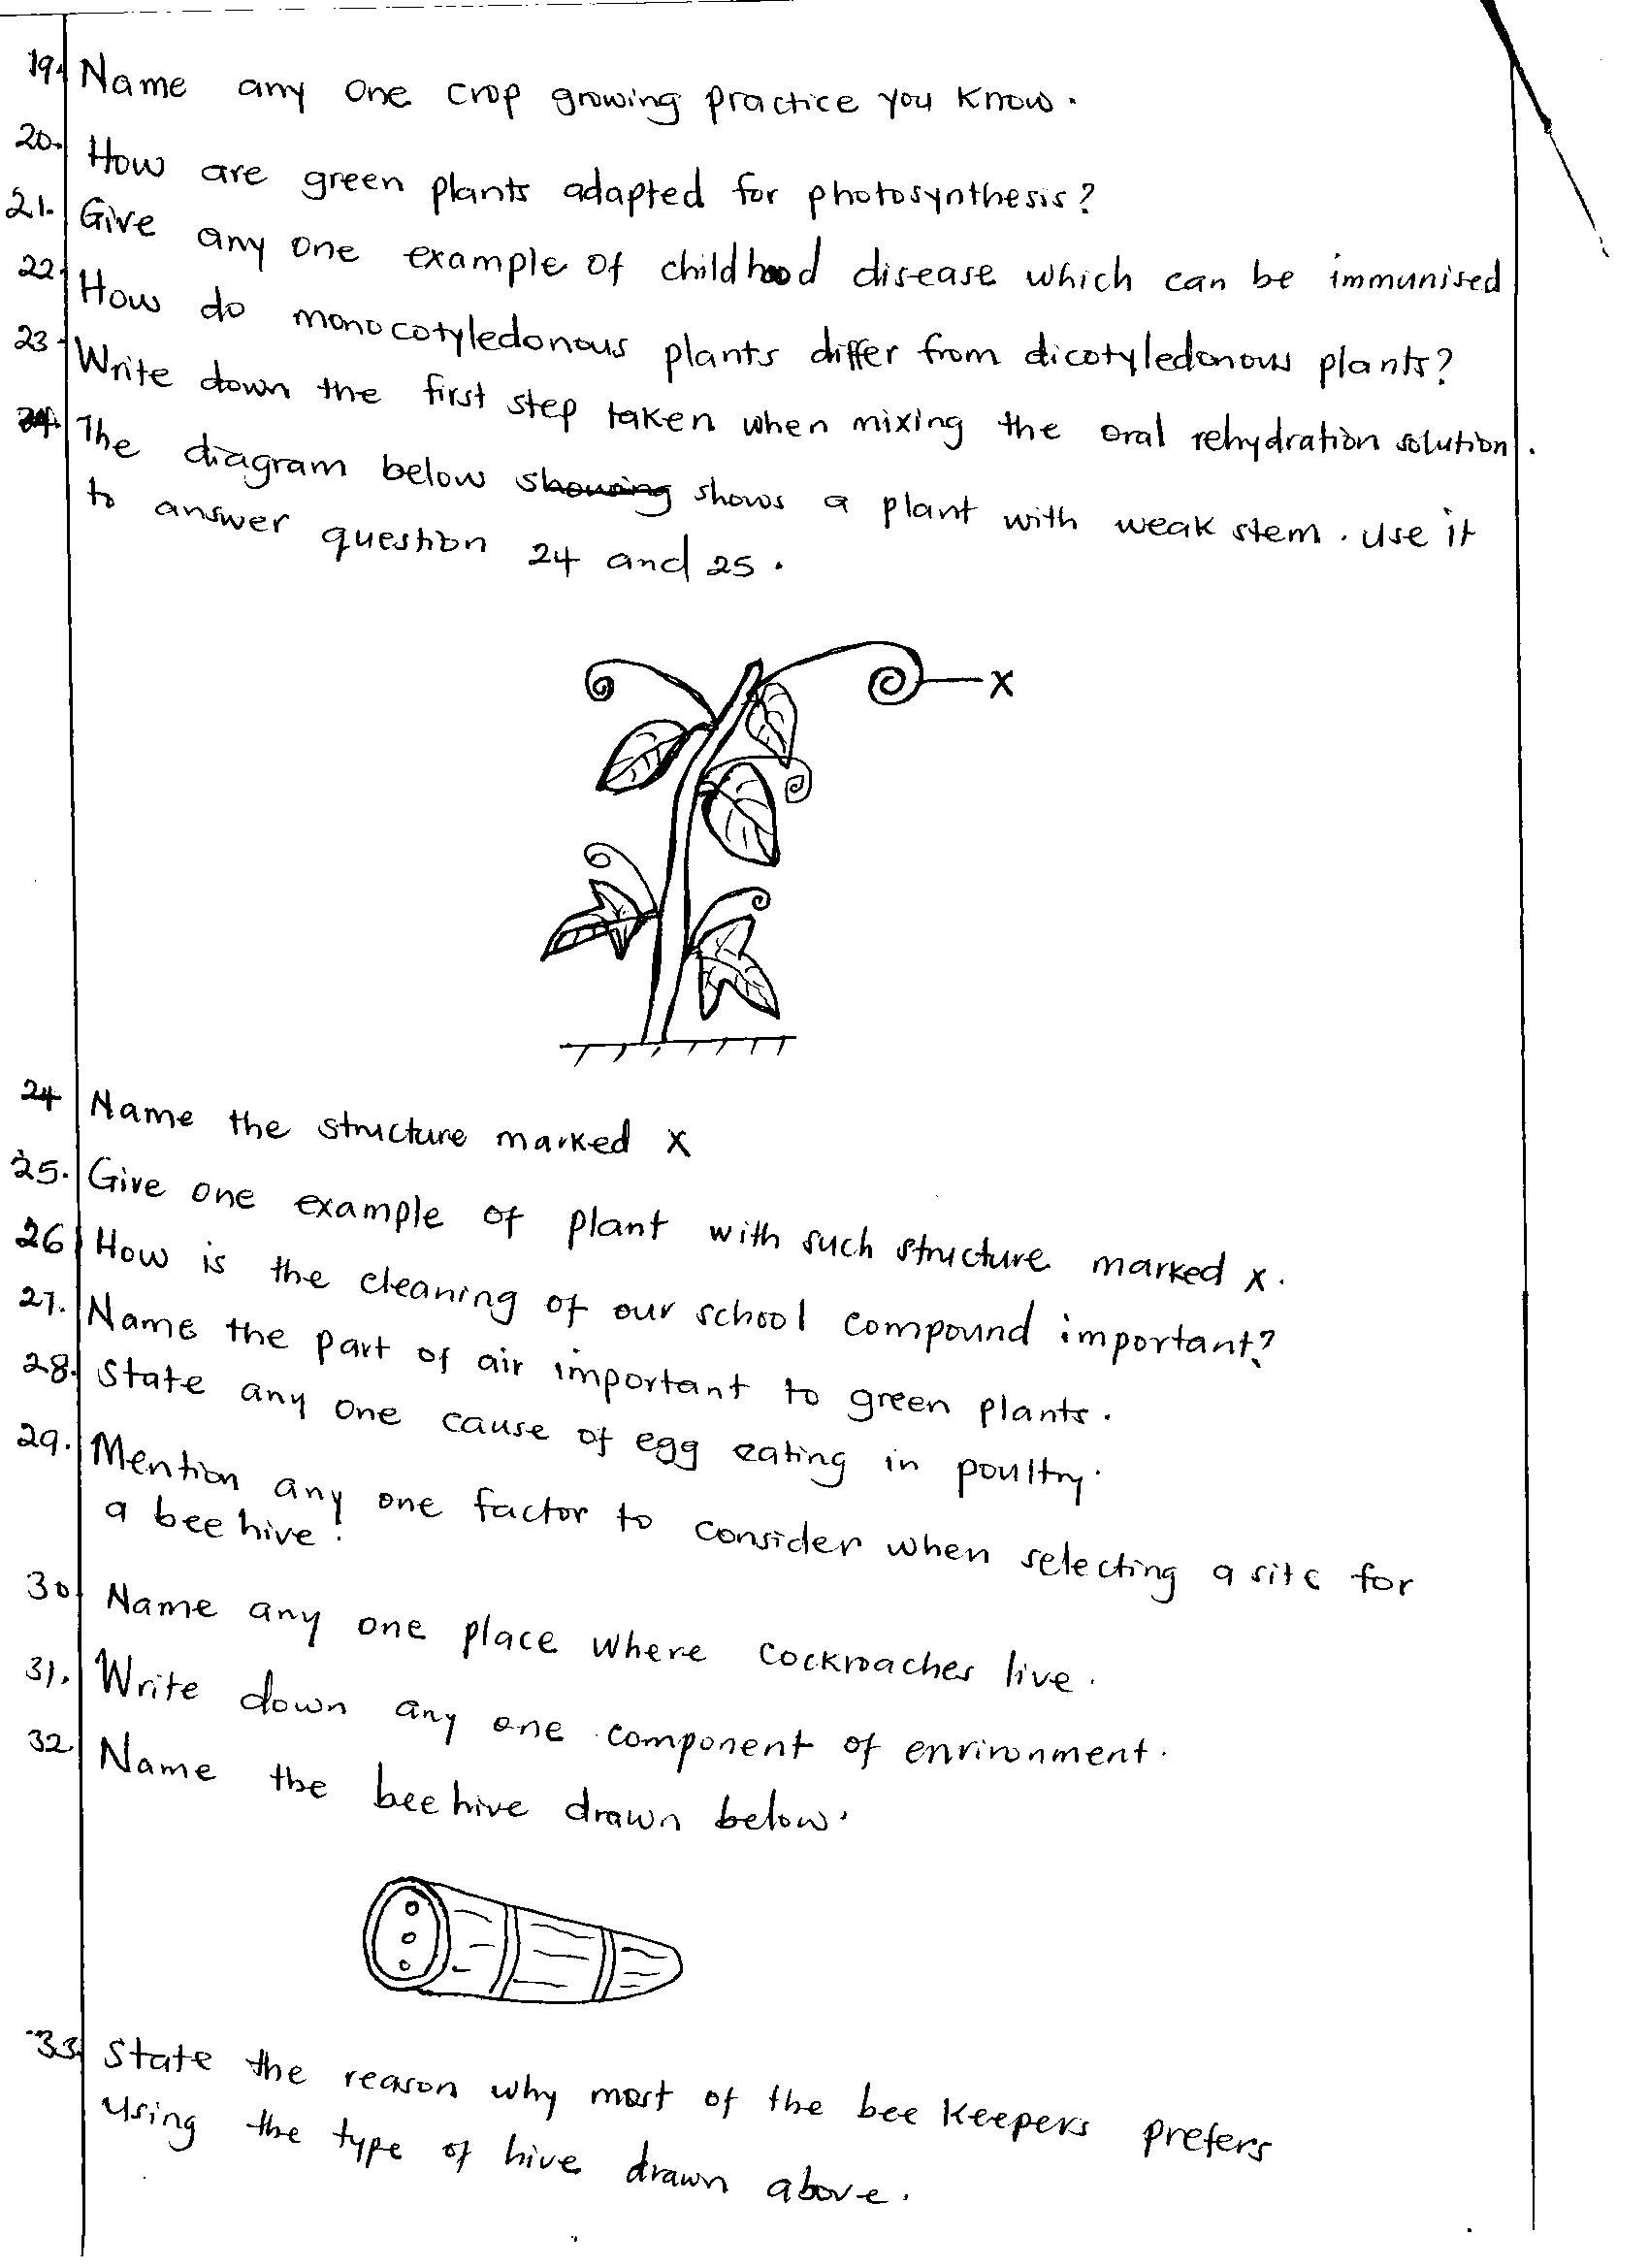 19. Name any one crop growing practice you know.
20. How are green plants adapted for photosynthesis?
21. Give any one example of childhood disease which can be immunised
22. How do monocotyledonous plants differ from dicotyledonous plants?
23. Write down the first step taken when mixing the oral rehydration solution.
The diagram below showing shows a plant with weak stem. Use it
to answer question 24 and 25.
X
24 Name the structure marked X
25. Give one example of plant with such structure marked x.
26 How is the cleaning of our school compound important?
27. Name the part of air important to green plants.
28. State any one cause of egg eating in poultry.
29. Mention any one factor to consider when selecting a site for
a bee hive.
30. Name any one place where cockroaches live.
31. Write down any one component of environment.
32 Name the bee hive drawn below.
33. State the reason why most of the bee keepers prefers
using the type of hive drawn above.